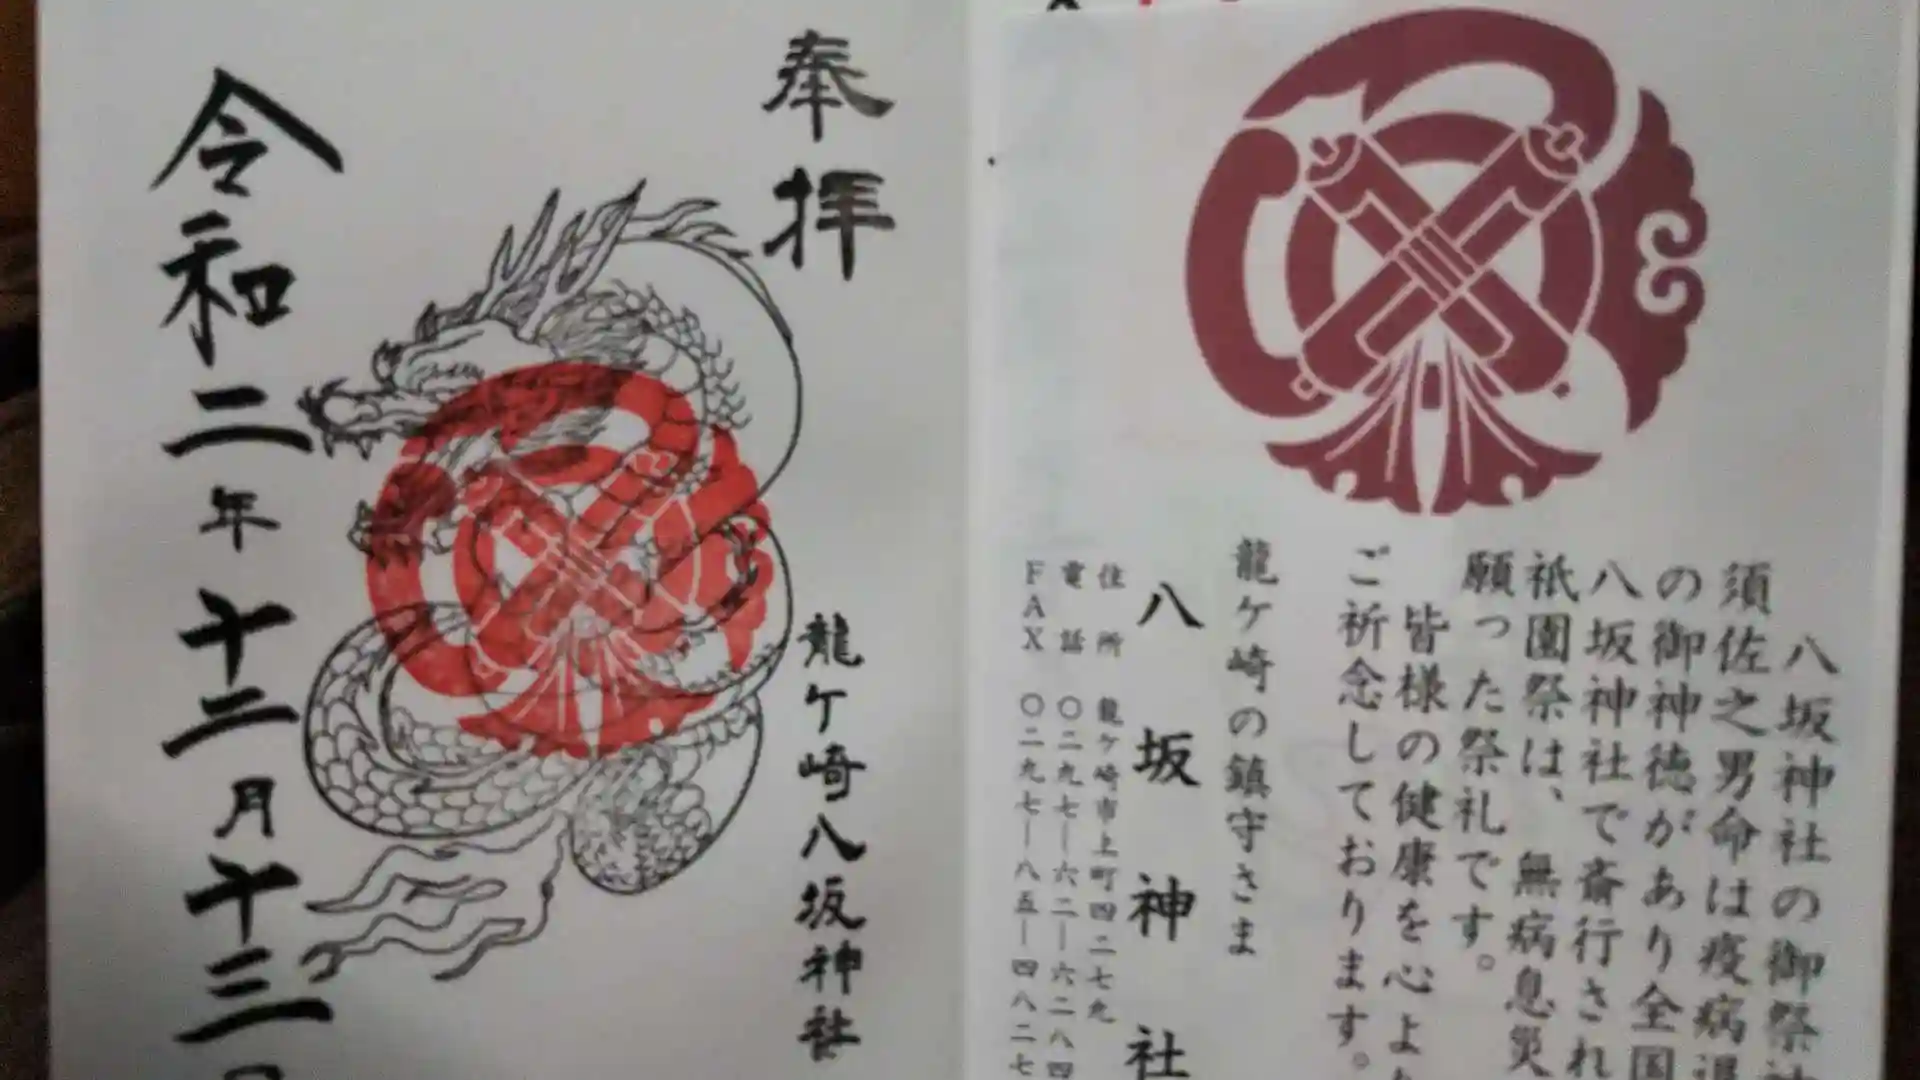 八坂神社の御祭神
須佐之男命は疫病退
の御神徳があり全国
八坂神社で斎行され
祇園祭は、無病息災
願った祭礼です。
皆様の健康を心より
ご祈念しております。
龍ケ崎の鎮守さま
八坂神社
住所 龍ケ崎市上町四二七九
電話 〇二九七ー六二ー六二八四
FAX 〇二九七ー八五ー四八二七
奉拝
龍ケ崎八坂神社
令和二年十二月十三日